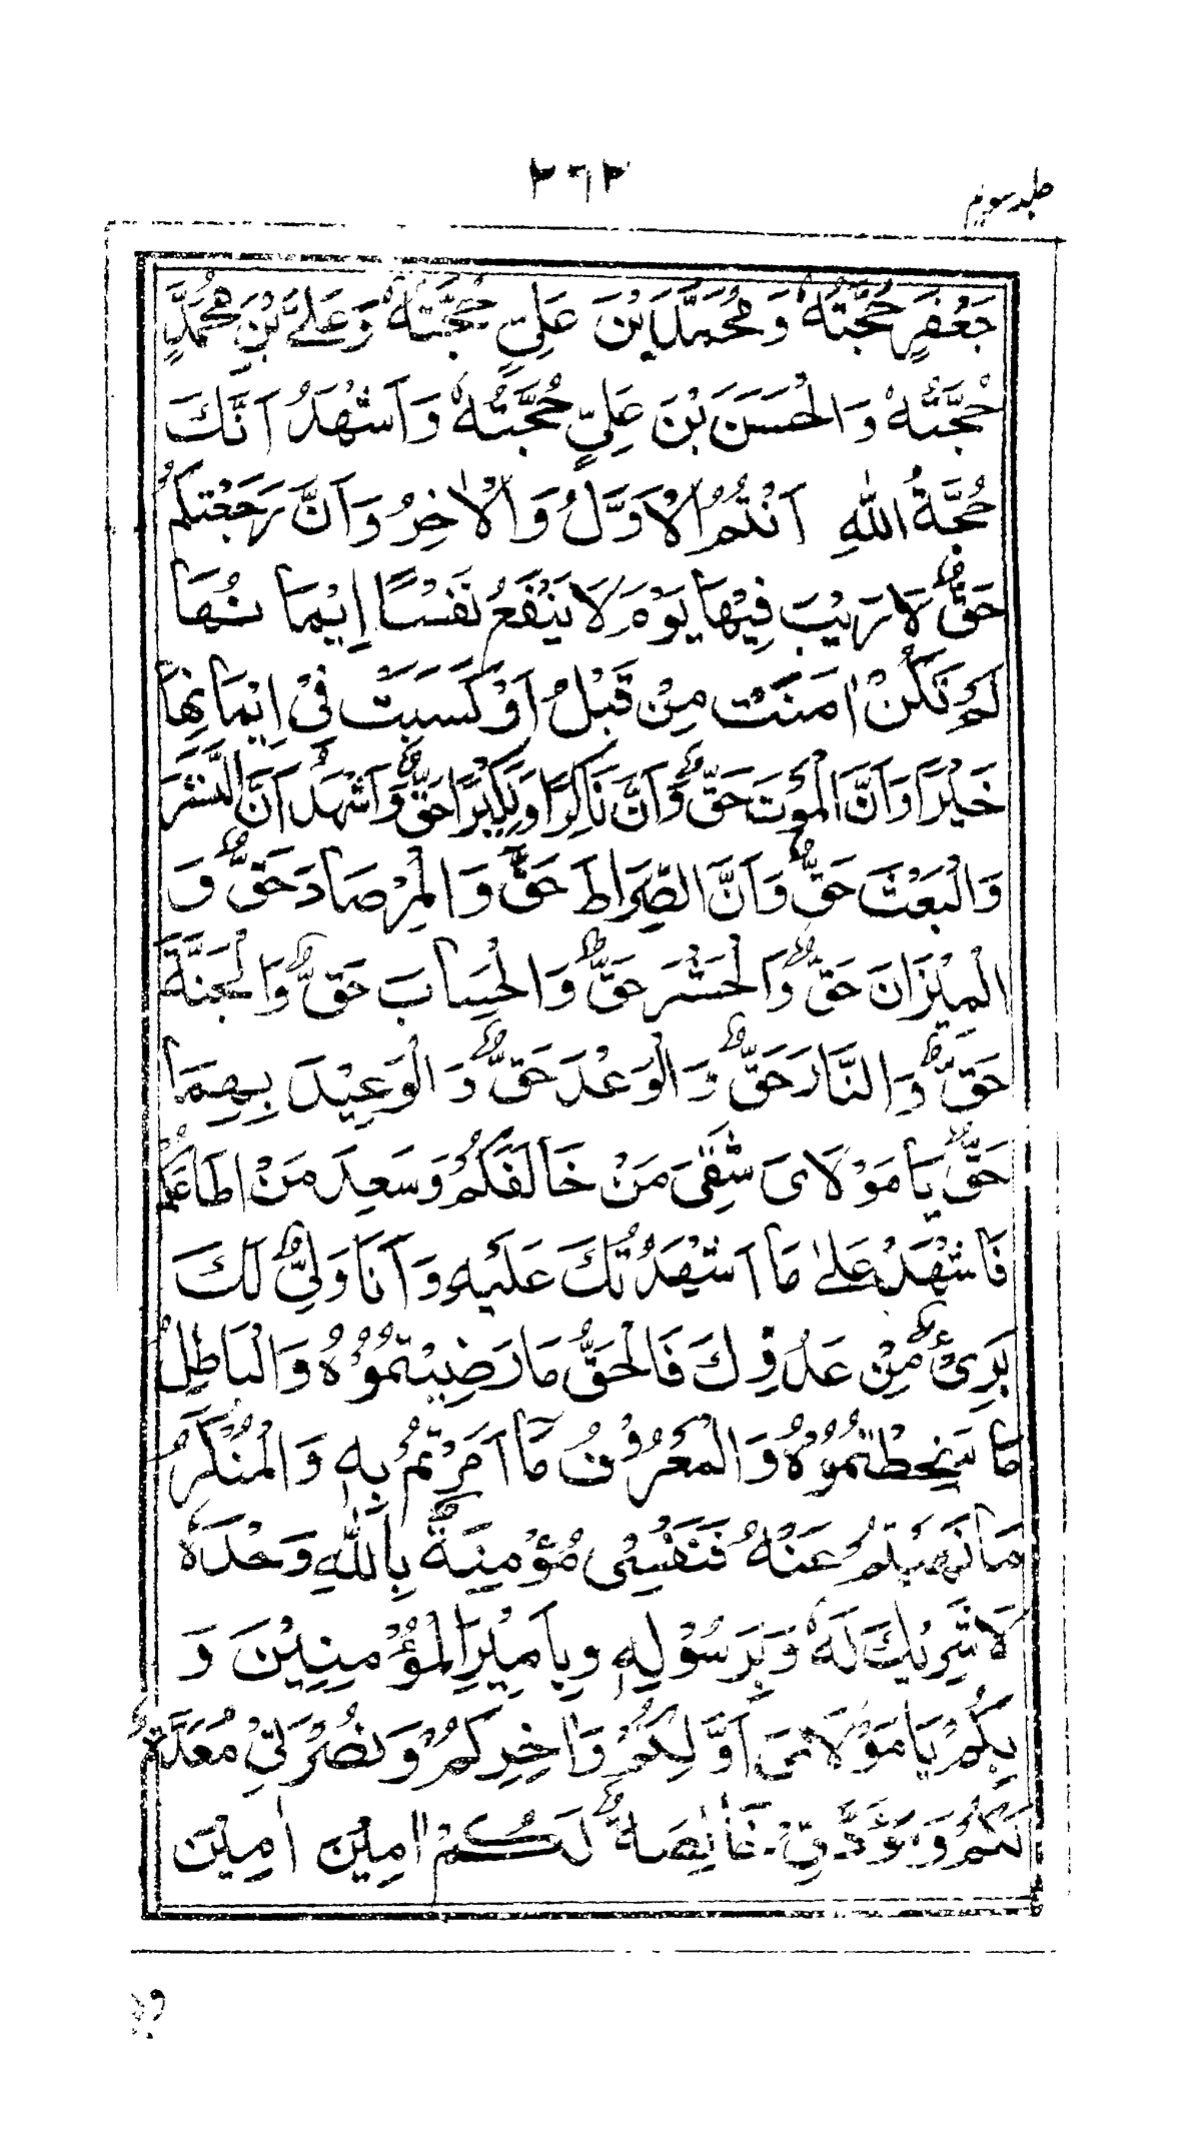 جلد سویم
جَعْفَرٍ حُجَّتُهٗ وَمُحَمَّدَ بْنَ عَلِیٍّ حُجَّتُهٗ وَعَلِیَّ بْنَ مُحَمَّدٍ
حُجَّتُهٗ وَالْحَسَنَ بْنَ عَلِیٍّ حُجَّتُهٗ وَاَشْهَدُ اَنَّكَ
حُجَّةُ اللهِ اَنْتُمُ الْاَوَّلُ وَالْاٰخِرُ وَاَنَّ رَجْعَتَكُمْ
حَقٌّ لَا رَیْبَ فِیْهَا یَوْمَ لَا یَنْفَعُ نَفْسًا اِیْمَانُهَا
لَمْ تَكُنْ اٰمَنَتْ مِنْ قَبْلُ اَوْ كَسَبَتْ فِیْ اِیْمَانِهَا
خَیْرًا وَاَنَّ الْمَوْتَ حَقٌّ وَاَنَّ نَاكِرًا وَنَكِیْرًا حَقٌّ وَاَشْهَدُ اَنَّ النَّشْرَ
وَالْبَعْثَ حَقٌّ وَاَنَّ الصِّرَاطَ حَقٌّ وَالْمِرْصَادَ حَقٌّ وَ
الْمِیْزَانَ حَقٌّ وَالْحَشْرَ حَقٌّ وَالْحِسَابَ حَقٌّ وَالْجَنَّةَ
حَقٌّ وَالنَّارَ حَقٌّ وَالْوَعْدَ حَقٌّ وَالْوَعِیْدَ بِهِمَا
حَقٌّ یَا مَوْلَایَ شَقِیَ مَنْ خَالَفَكُمْ وَسَعِدَ مَنْ اَطَاعَكُمْ
فَاشْهَدْ عَلٰی مَا اَشْهَدْتُكَ عَلَیْهِ وَاَنَا وَلِیٌّ لَكَ
بَرِیْءٌ مِنْ عَدُوِّكَ فَالْحَقُّ مَا رَضِیْتُمُوْهُ وَالْبَاطِلُ
مَا سَخِطْتُمُوْهُ وَالْمَعْرُوْفُ مَا اَمَرْتُمْ بِهٖ وَالْمُنْكَرُ
مَا نَهَیْتُمْ عَنْهُ فَنَفْسِیْ مُؤْمِنَةٌ بِاللهِ وَحْدَهٗ
لَا شَرِیْكَ لَهٗ وَبِرَسُوْلِهٖ وَبِاَمِیْرِ الْمُؤْمِنِیْنَ وَ
بِكُمْ یَا مَوْلَایَ اَوَّلِكُمْ وَاٰخِرِكُمْ وَنُصْرَتِیْ مُعَدَّةٌ
لَكُمْ وَمَوَدَّتِیْ خَالِصَةٌ لَكُمْ اٰمِیْنَ اٰمِیْنَ